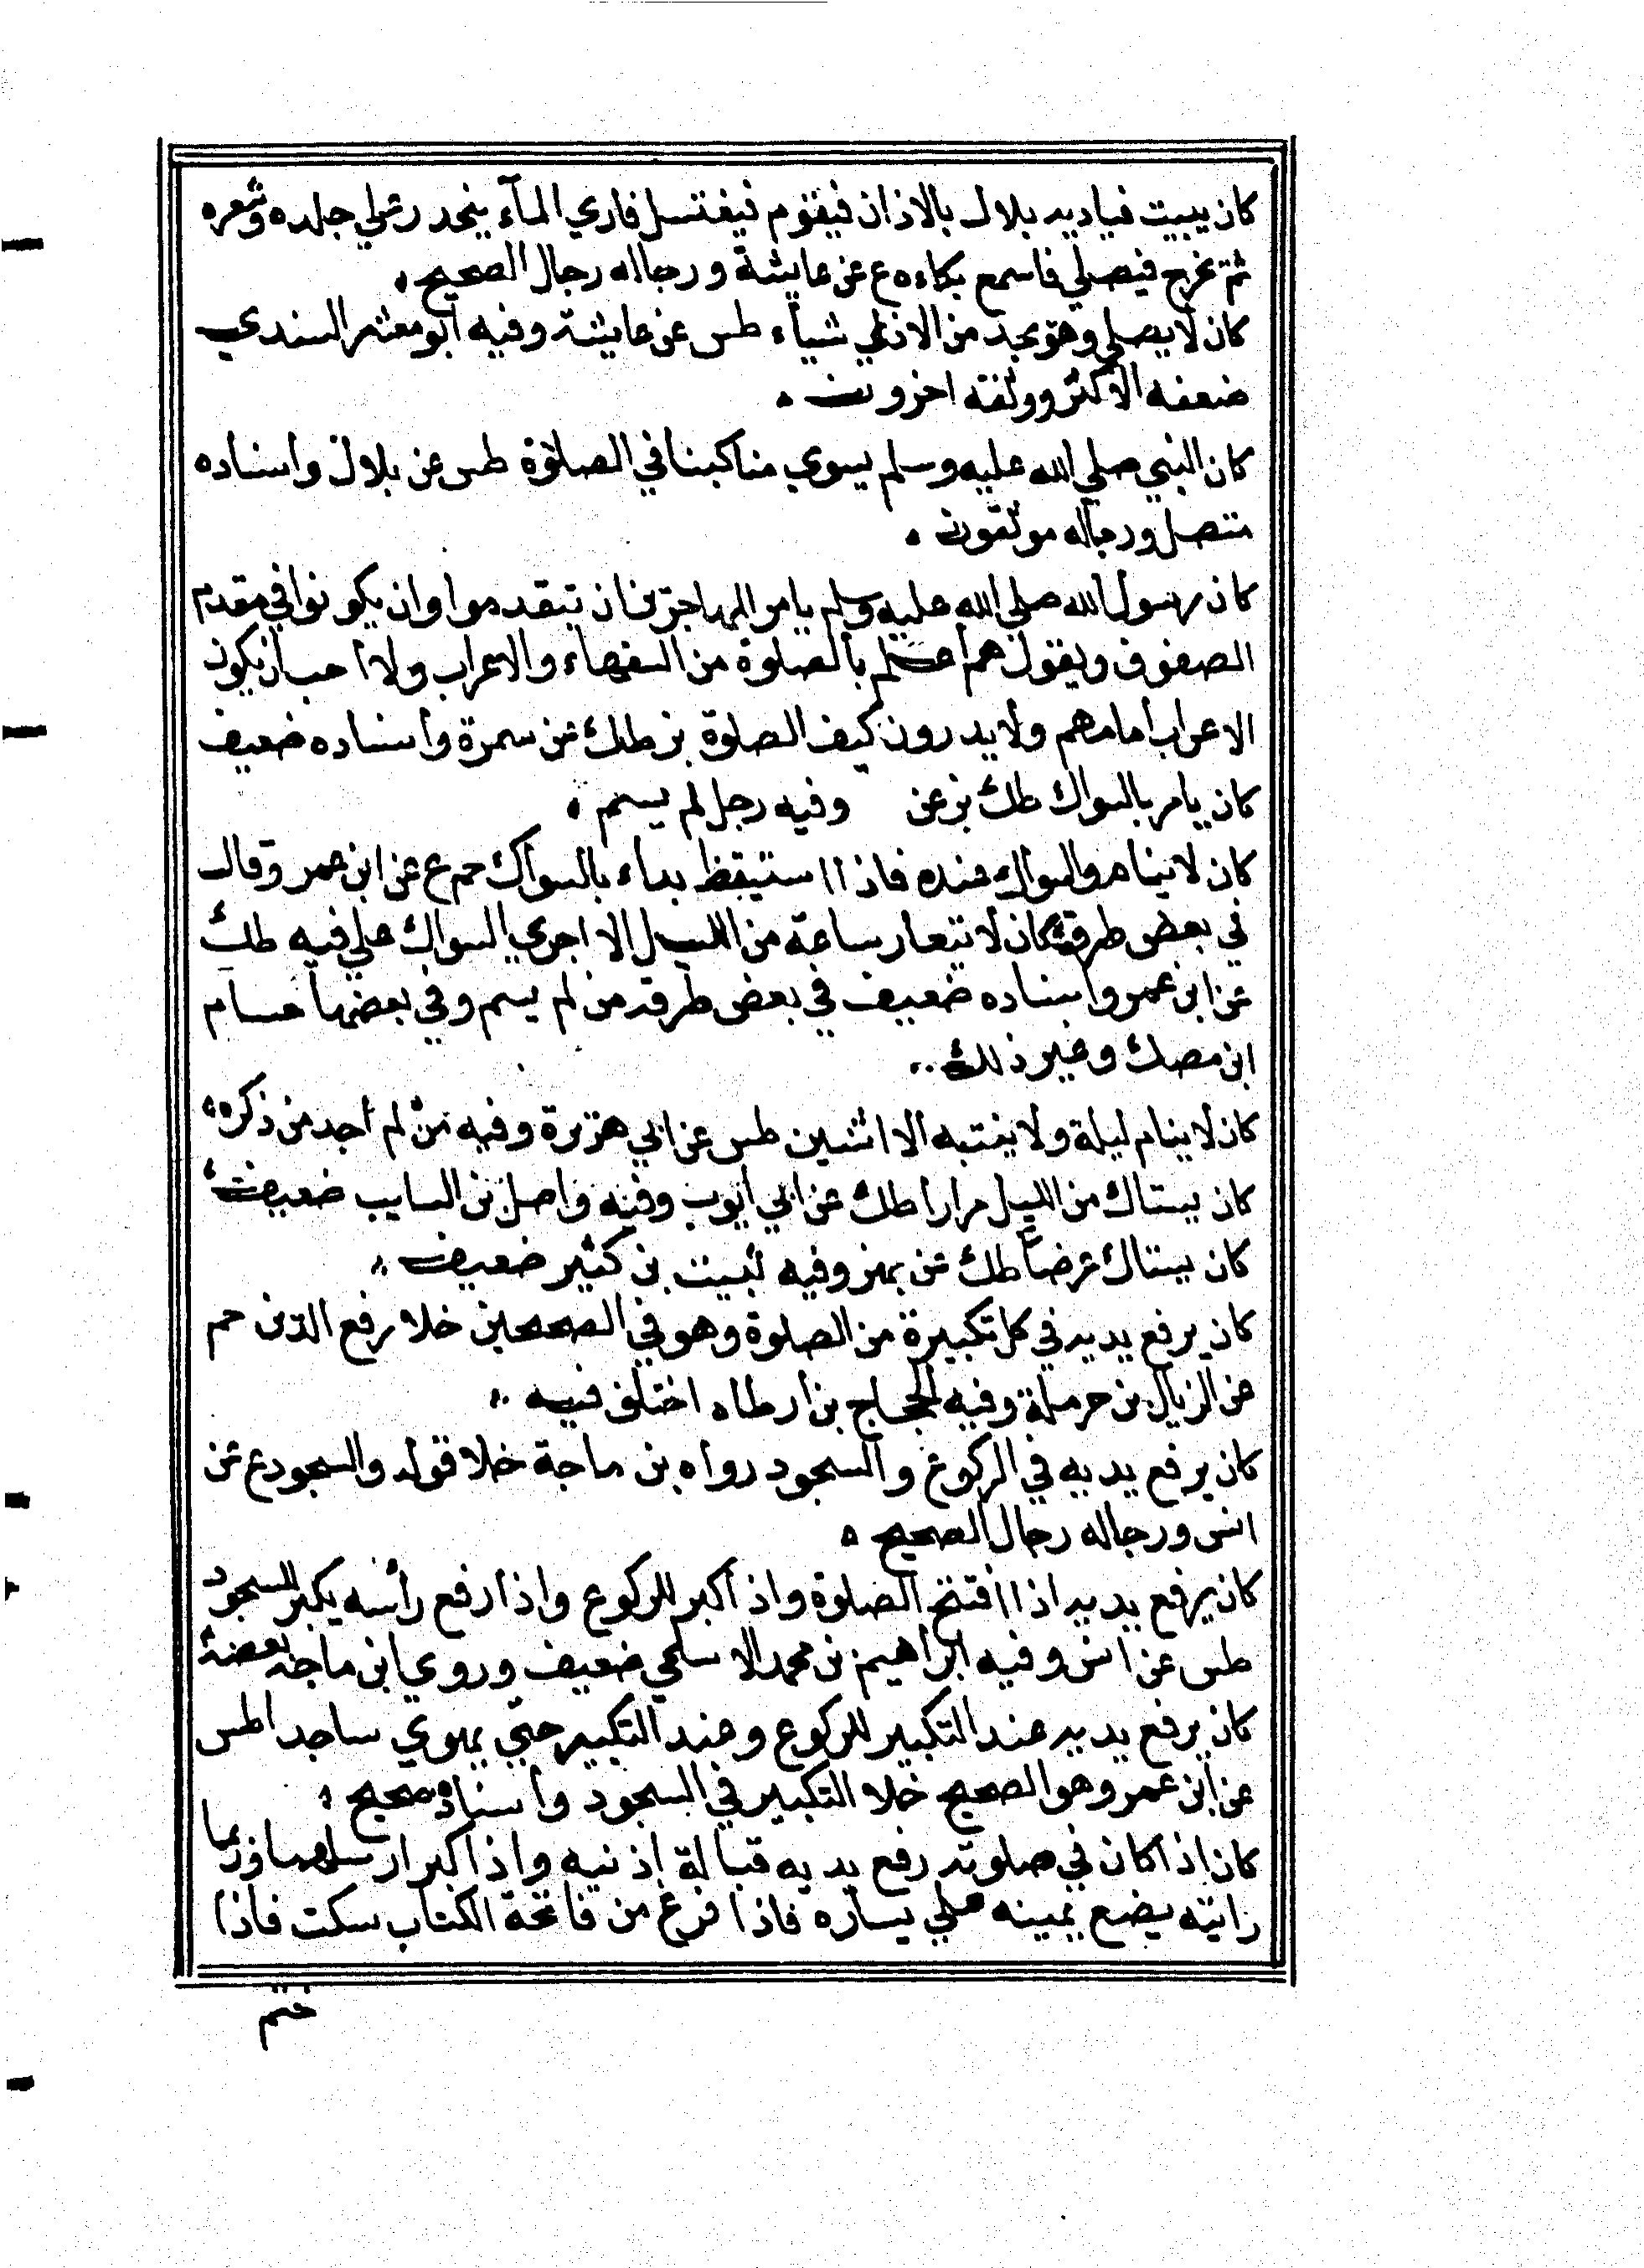 كان يبيت فياديه بلال بالاذان فيقوم فيغتسل فاري المآء ينحدر علي جلده وشعره
ثم يخرج فيصلي فاسمع بكاءه ع عن عايشة ورجاله رجال الصحيح
كان لا يصلي وهو يجد من الاذي شيأ طس عن عايشة وفيه ابو معشر السندي
ضعفه الاكثر ووثقه اخرون
كان النبي صلي الله عليه وسلم يسوي مناكبنا في الصلوة طس عن بلال واسناده
متصل ورجاله موثقون
كان رسول الله صلي الله عليه وسلم يامر المهاجرين ان يتقدموا وان يكونوا في مقدم
الصفوف ويقول هم اعلم بالصلوة من السفهاء والاعراب ولا احب ان يكون
الاعراب امامهم ولا يدرون كيف الصلوة بز طك عن سمرة واسناده ضعيف
كان يامر بالسواك طك بز عن وفيه رجل لم يسم
كان لا ينام والسواك عنده فاذا استيقظ بداء بالسواك حم ع عن ابن عمر وقال
في بعض طرقه كان لا يتعار ساعة من الليل الا اجري السواك علي فيه طك
عن ابن عمر واسناده ضعيف في بعض طرقه من لم يسم وفي بعضها حسام
ابن مصك وغير ذلك
كان لا ينام ليلة ولا ينتبه الا اثنين طس عن ابي هريرة وفيه من لم اجد من ذكره
كان يستاك من الليل مرارا طك عن ابي ايوب وفيه واصل بن السايب ضعيف
كان يستاك عرضا طك عن بهز وفيه ثبيت بن كثير ضعيف
كان يرفع يديه في كل تكبيرة من الصلوة وهو في الصحيحين خلا رفع الذين حم
عن الزيال بن حرملة وفيه الحجاج بن ارطاه اختلف فيه
كان يرفع يديه في الركوع والسجود رواه بن ماجة خلا قوله والسجود ع عن
انس ورجاله رجال الصحيح
كان يرفع يديه اذا افتتح الصلوة واذا كبر للركوع واذا رفع رأسه يكبر للسجود
طس عن انس وفيه ابراهيم بن محمد الاسلمي ضعيف وروي ابن ماجه بعضه
كان يرفع يديه عند التكبير للركوع وعند التكبير حتي يهوي ساجدا طس
عن ابن عمر وهو الصحيح خلا التكبير في السجود واسناده صحيح
كان اذا كان في صلوته رفع يديه قبالة اذنيه واذا كبر ارسلهما وربما
رايته يضع يمينه علي يساره فاذا فرغ من فاتحة الكتاب سكت فاذا
ختم